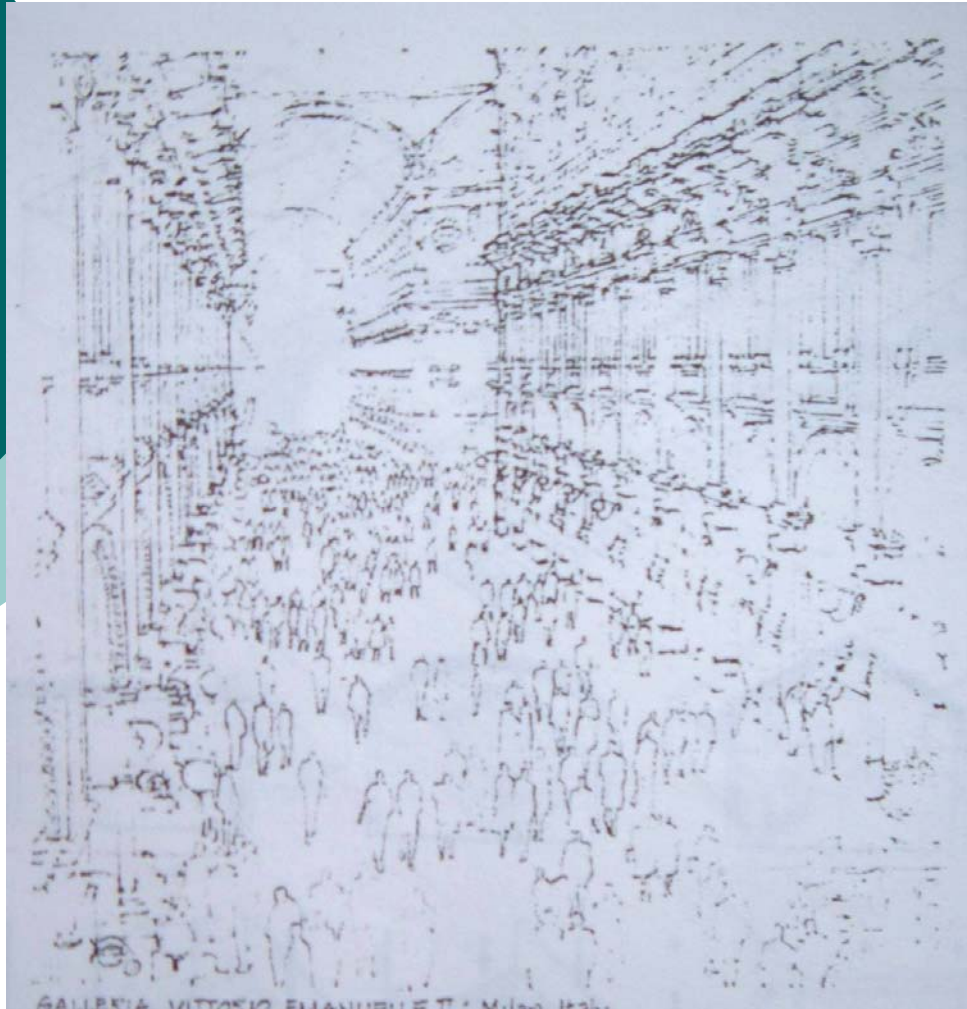 GALLERIA VITTORIO EMANUELE II : Milan, Italy